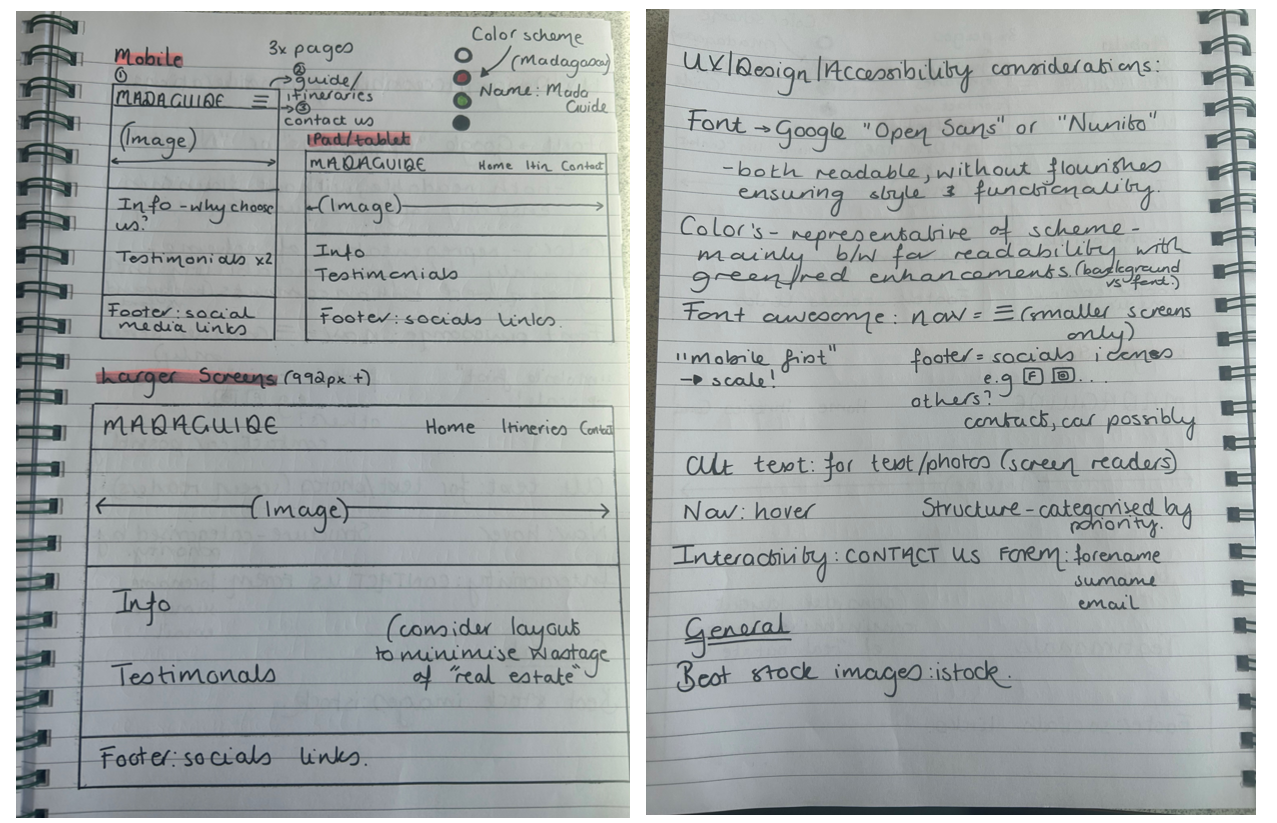 Mobile
①
MADAGUIDE ☰
(Image)
Info - why choose
us?
Testimonials x2
Footer: social
media links
3x pages
②
guide/
itineraries
③
contact us
Color scheme
(Madagascar)
Name: Mada
Guide
iPad/tablet
MADAGUIDE Home Itin Contact
(Image)
Info
Testimonials
Footer: socials links.
Larger Screens (992px +)
MADAGUIDE Home Itineries Contact
(Image)
Info
Testimonals
(consider layout
to minimise wastage
of "real estate"
Footer: socials links.
UX/Design/Accessibility considerations:
Font → Google "Open Sans" or "Nunito"
- both readable, without flourishes
ensuring style & functionality.
Color's - representative of scheme -
mainly b/w for readability with
green/red enhancements. (background
vs ford.)
Font awesome: nav = ☰ (smaller screens
only)
"mobile first"
→ scale!
footer = socials icons
e.g F ...
others?
contact, car possibly
Alt text: for text/photos (screen readers)
Nav: hover
Structure - categorised by
priority.
Interactivity: CONTACT US FORM: forename
surname
email
General
Best stock images: istock.